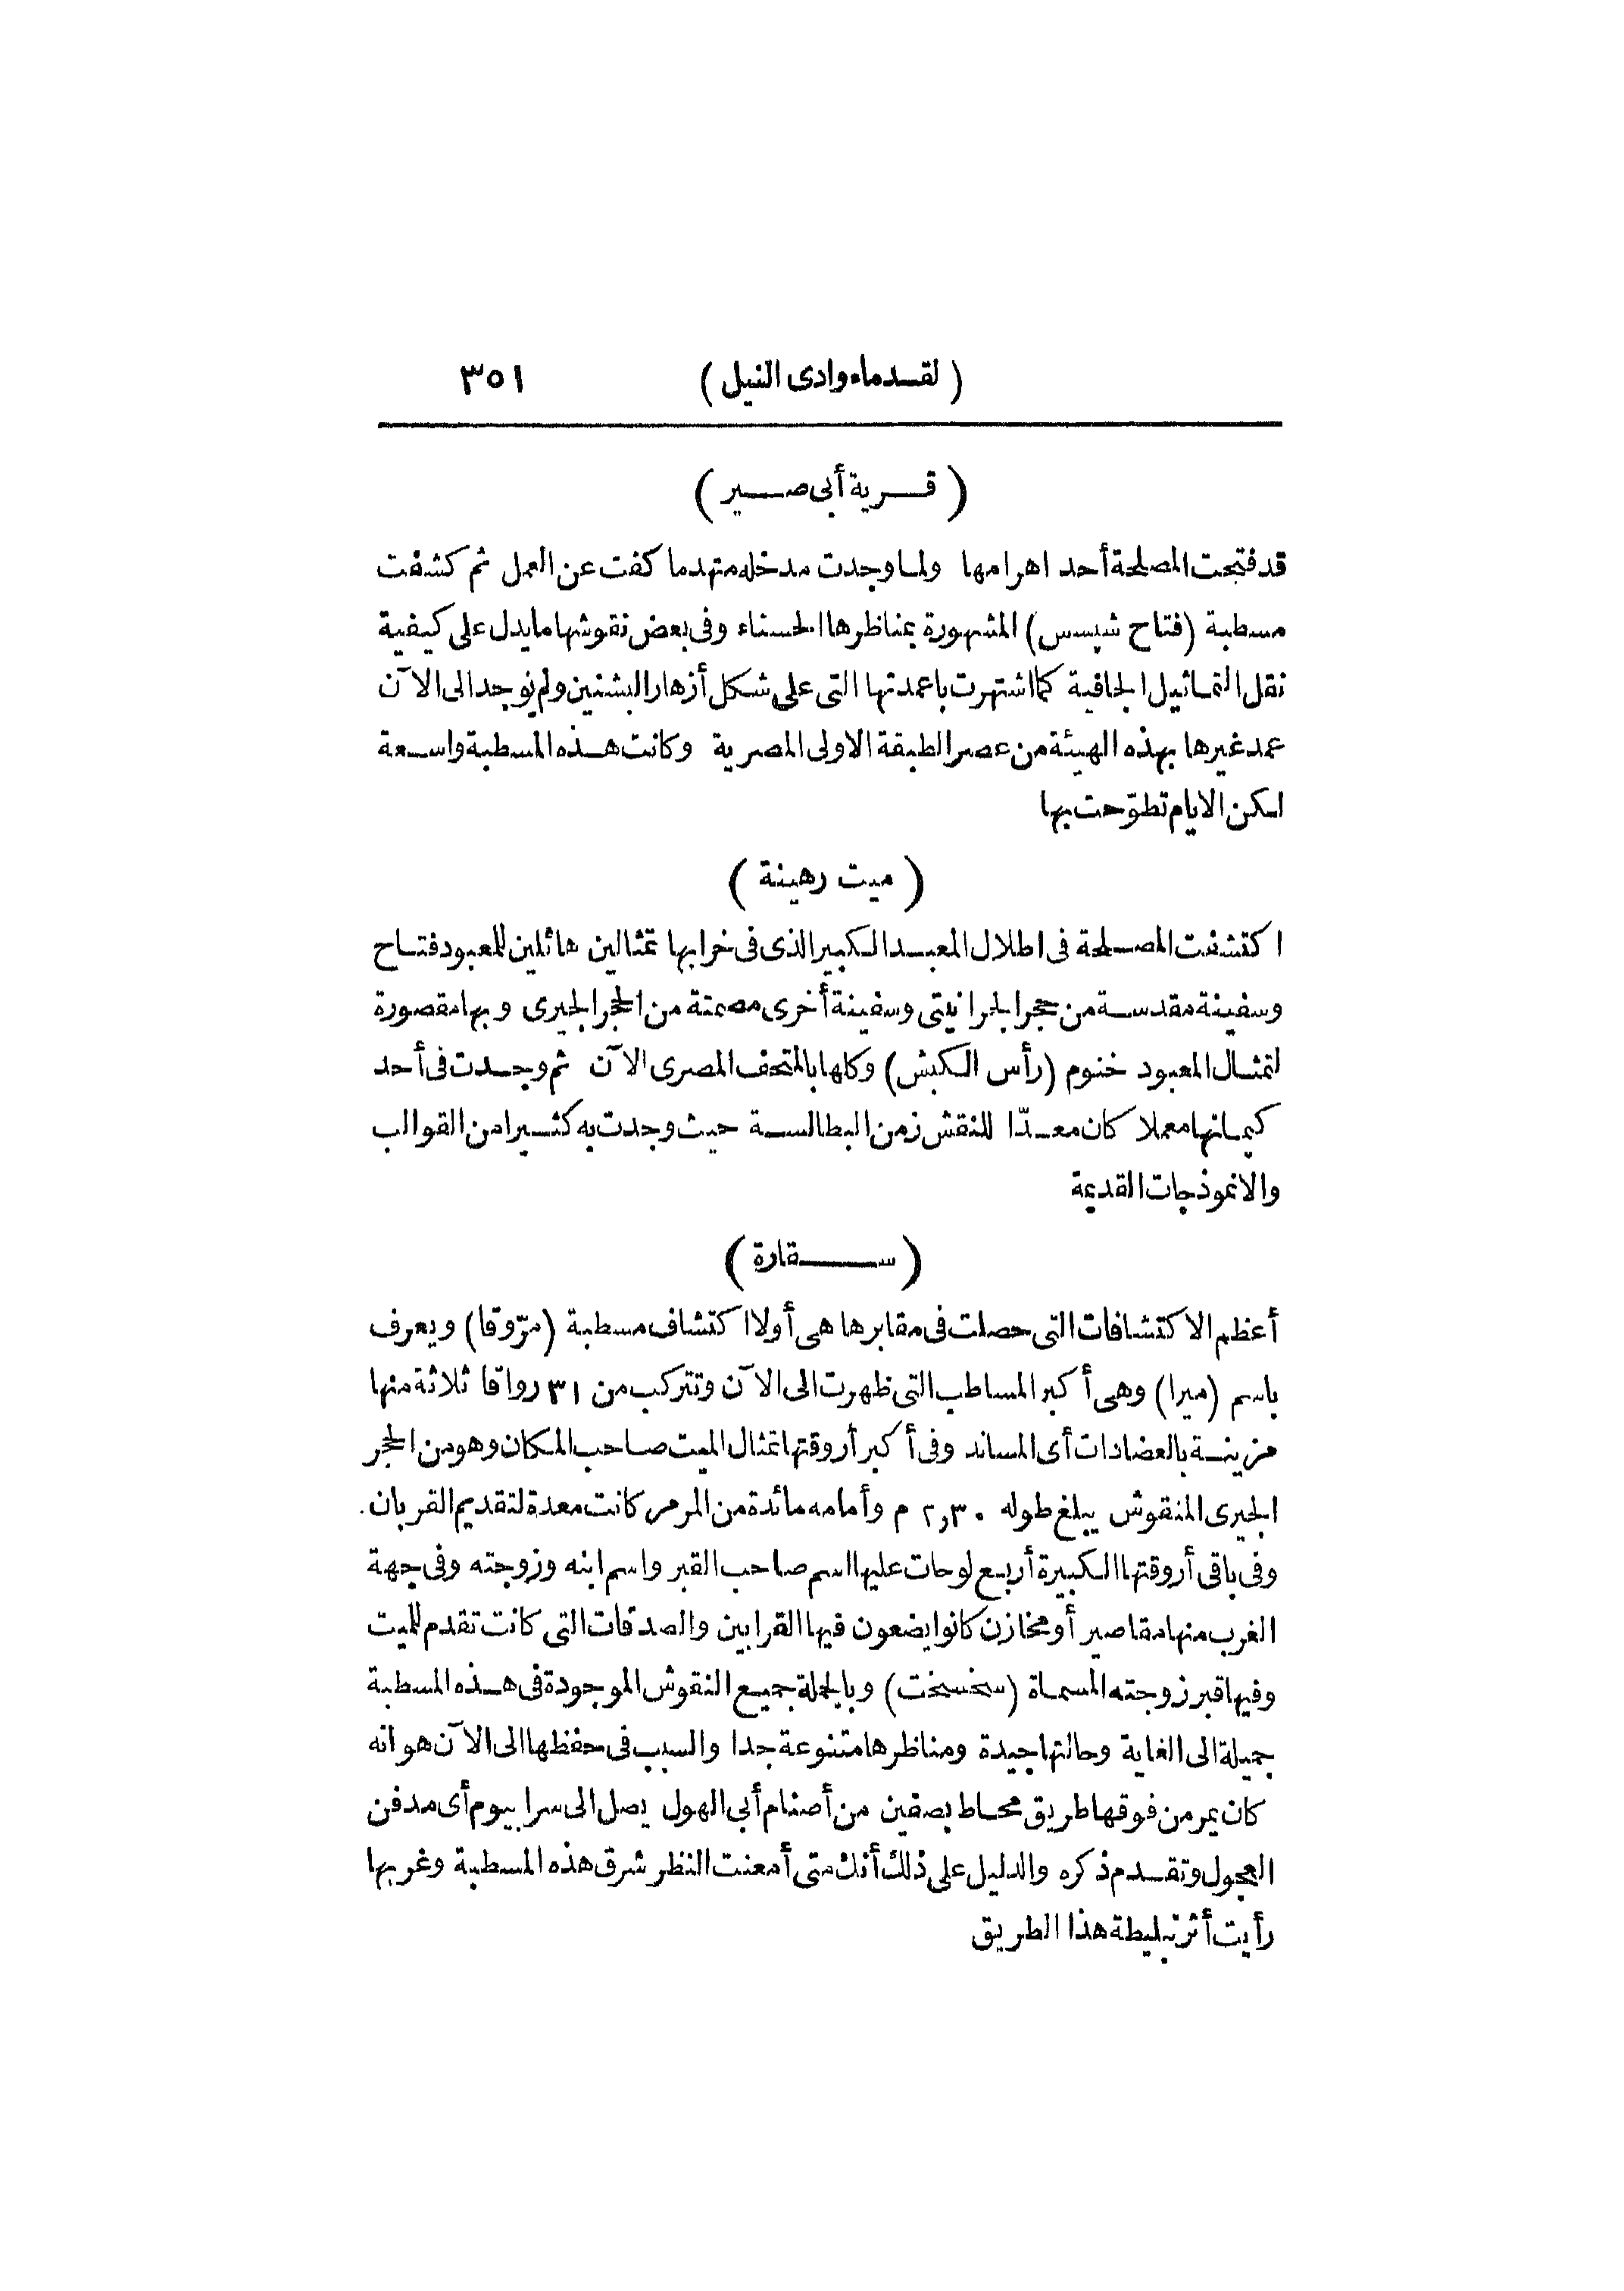 (لقدماء وادى النيل) ٣٥١
(قرية أبى صير)
قد فتحت المصلحة أحد اهرامها ولما وجدت مدخله متهدما كفت عن العمل ثم كشفت
مسطبة (فتاح شپسس) المشهورة بمناظرها الحسناء وفى بعض نقوشها ما يدل على كيفية
نقل التماثيل الجافية كما اشتهرت باعمدتها التى على شكل أزهار البشنين ولم يوجد الى الآن
عمد غيرها بهذه الهيئة من عصر الطبقة الاولى المصرية وكانت هذه المسطبة واسعة
لكن الايام تطوّحت بها
(ميت رهينة)
اكتشفت المصلحة فى اطلال المعبد الكبير الذى فى خرابها تمثالين هائلين للمعبود فتاح
وسفينة مقدسة من حجر الجرانيتى وسفينة أخرى مصمتة من الحجر الجيرى وبها مقصورة
لتمثال المعبود خنوم (رأس الكبش) وكلها بالمتحف المصرى الآن ثم وجدت فى أحد
كيمانها معملا كان معدّا للنقش زمن البطالسة حيث وجدت به كثيرا من القوالب
والانموذجات القديمة
(سقارة)
أعظم الاكتشافات التى حصلت فى مقابرها هى أولا اكتشاف مسطبة (مرّوقا) ويعرف
باسم (ميرا) وهى أكبر المساطب التى ظهرت الى الآن وتتركب من ٣١ رواقا ثلاثة منها
مزينة بالعضادات أى المساند وفى أكبر أروقتها تمثال الميت صاحب المكان وهو من الحجر
الجيرى المنقوش يبلغ طوله ٢٫٣٠ م وأمامه مائدة من المرمر كانت معدة لتقديم القربان.
وفى باقى أروقتها الكبيرة أربع لوحات عليها اسم صاحب القبر واسم ابنه وزوجته وفى جهة
الغرب منها مقاصير أو مخازن كانوا يضعون فيها القرابين والصدقات التى كانت تقدم للميت
وفيها قبر زوجته المسماة (سخسخت) وبالجملة جميع النقوش الموجودة فى هذه المسطبة
جميلة الى الغاية وحالتها جيدة ومناظرها متنوعة جدا والسبب فى حفظها الى الآن هو انه
كان يمر من فوقها طريق محاط بصفين من أصنام أبى الهول يصل الى سرابيوم أى مدفن
العجول وتقدم ذكره والدليل على ذلك أنك متى أمعنت النظر شرق هذه المسطبة وغربها
رأيت أثر تبليطة هذا الطريق